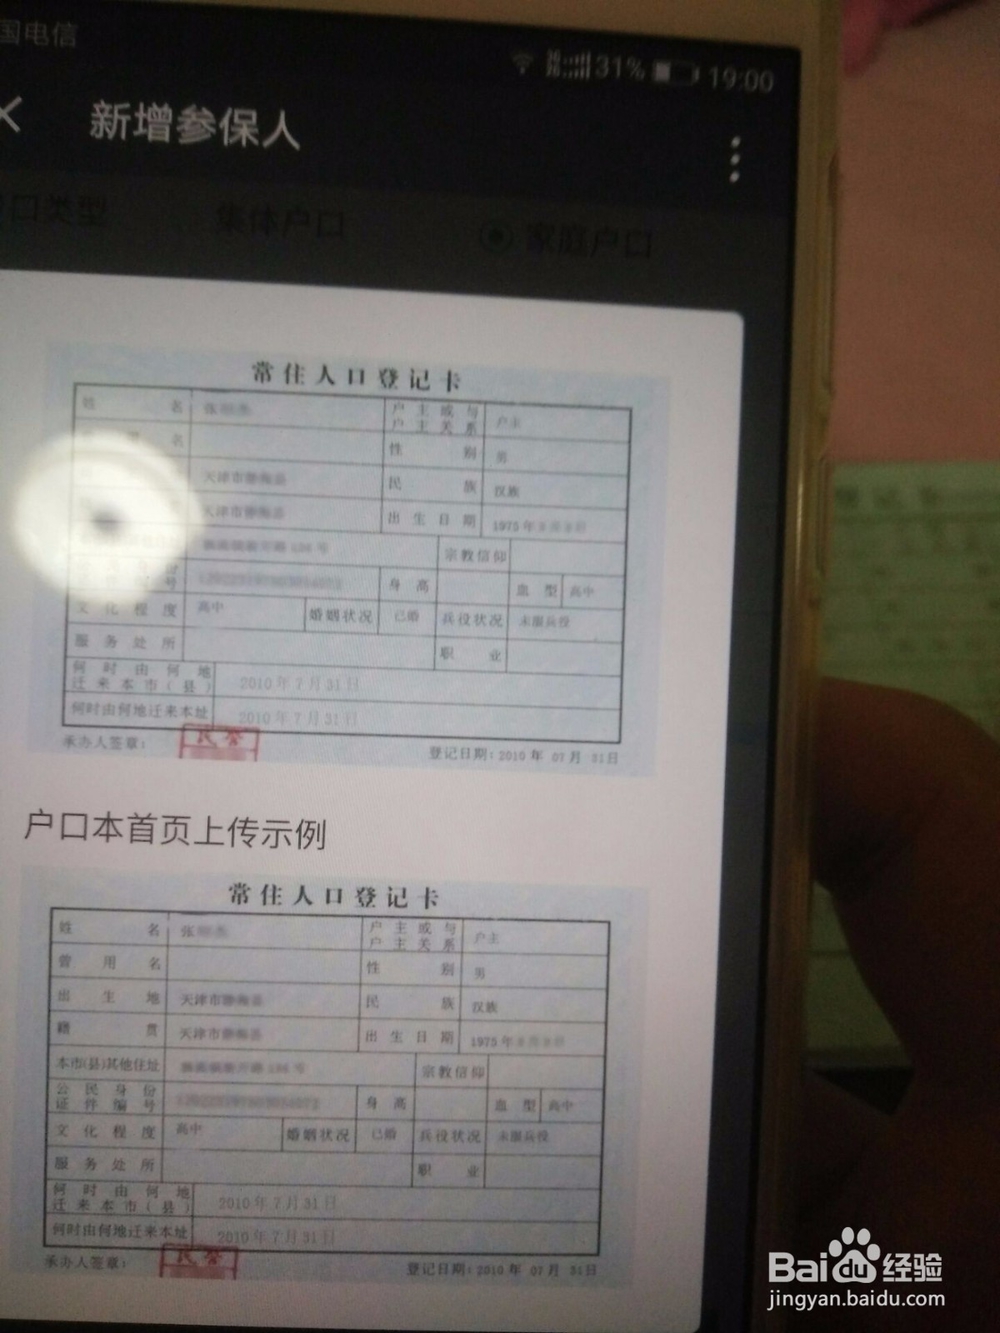 国电信
31% 19:00
新增参保人
口类型 集体户口 家庭户口
常住人口登记卡
姓 名 张 户主或与户主关系 户主
名 性 别 男
天津市 民 族 汉族
天津市 出生日期 1975年
宗教信仰
号 身高 血型 高中
文化程度 高中 婚姻状况 已婚 兵役状况 未服兵役
服务处所 职 业
何时由何地迁来本市(县) 2010年7月31日
何时由何地迁来本址 2010年7月31日
承办人签章: 民警 登记日期:2010年 07月 31日
户口本首页上传示例
常住人口登记卡
姓 名 张 户主或与户主关系 户主
曾用名 性 别 男
出生地 天津市 民 族 汉族
籍 贯 天津市 出生日期 1975年
本市(县)其他住址 宗教信仰
公民身份证件编号 身高 血型 高中
文化程度 高中 婚姻状况 已婚 兵役状况 未服兵役
服务处所 职 业
何时由何地迁来本市(县) 2010年7月31日
何时由何地迁来本址 2010年7月31日
承办人签章: 民警 登记日期:2010年 07月 31日
Baidu经验
jingyan.baidu.com